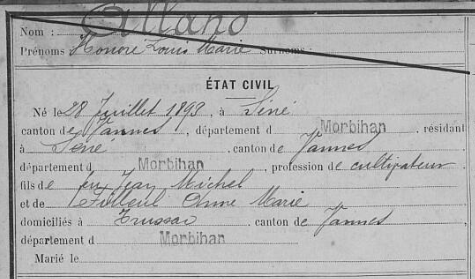 Nom : Allano
Prénoms Honoré Louis Marie Surnoms
ÉTAT CIVIL
Né le 28 Juillet 1893, à Séné
canton de Vannes, département d Morbihan, résidant
à Séné, canton de Vannes
département d Morbihan, profession de cultivateur
fils de feu Jean Michel
et de Filleul Anne Marie
domiciliés à Trussac canton de Vannes
département d Morbihan
Marié le